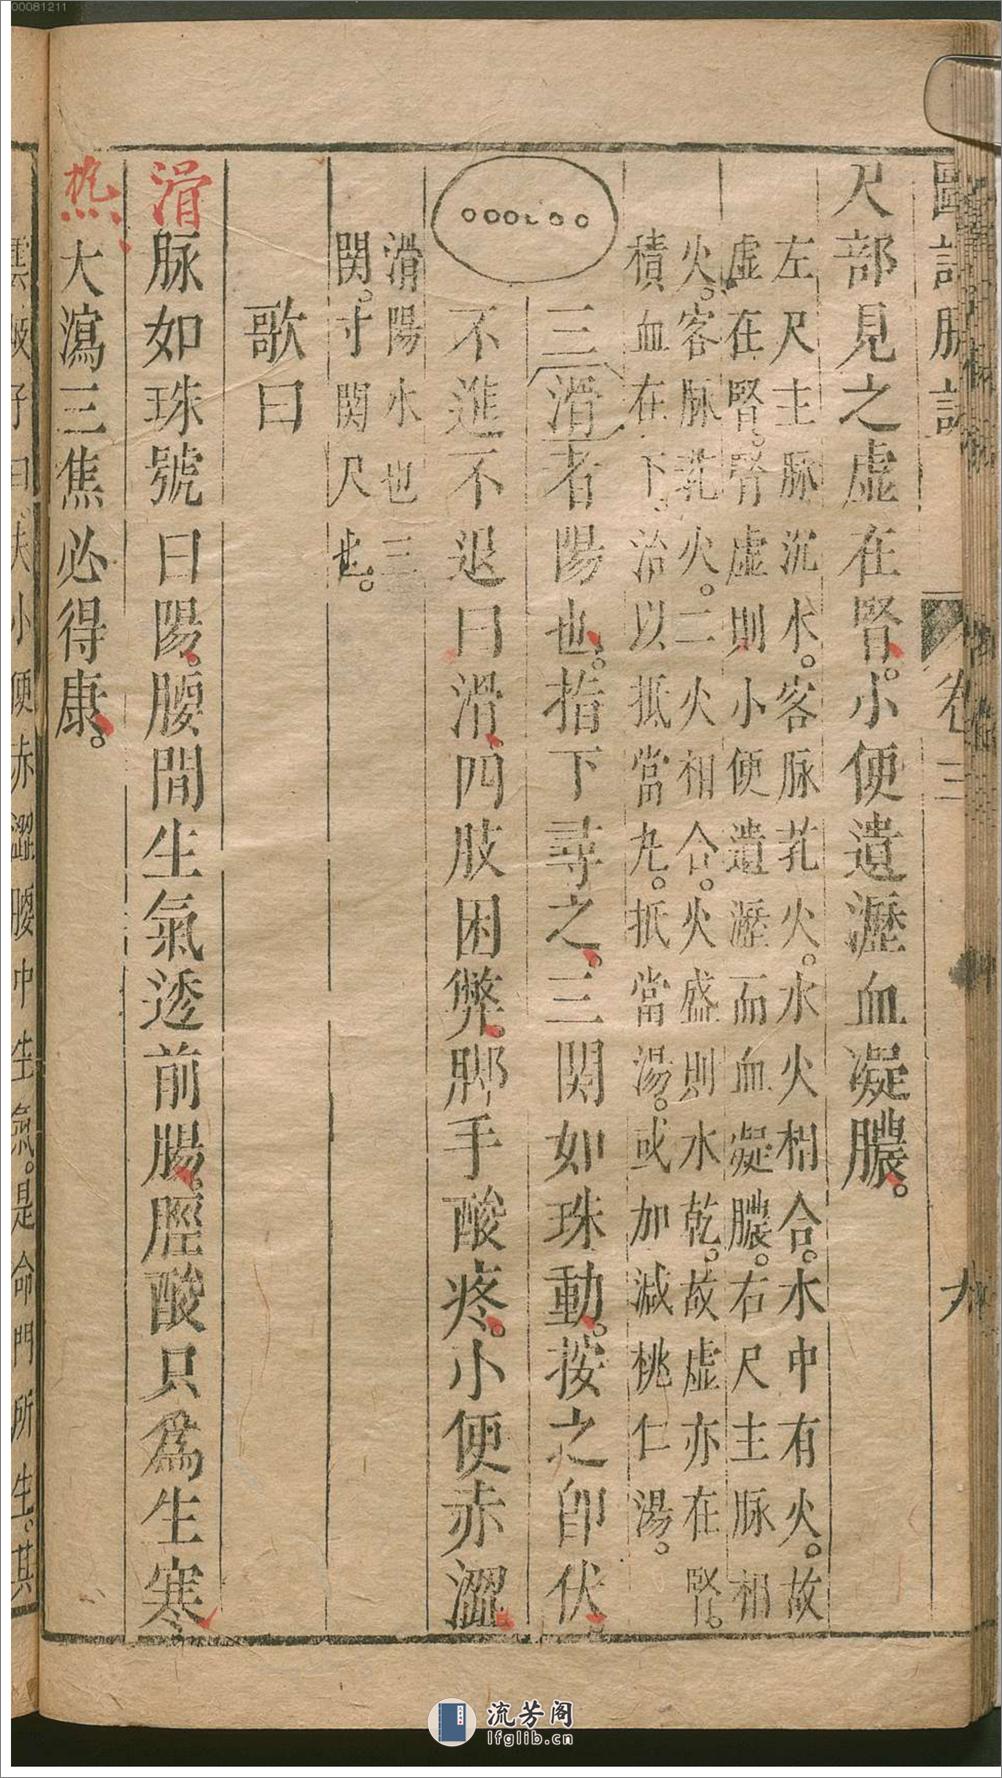 00081211
圖註脈訣
卷三
九
尺部見之虛在腎。小便遺瀝血凝膿。
左尺主脉沉水。客脉芤火。水火相合。水中有火。故
虛在腎。腎虛則小便遺瀝而血凝膿。右尺主脉相
火。客脉芤火。二火相合。火盛則水乾。故虛亦在腎。
積血在下。治以抵當丸。抵當湯。或加減桃仁湯。
三滑者陽也。指下尋之。三関如珠動。按之即伏
不進不退曰滑。四肢困弊。脚手酸疼。小便赤澀
滑陽水也三
関。寸関尺也。
歌曰
滑脉如珠號曰陽。腰間生氣透前腸。脛酸只爲生寒
熱大瀉三焦必得康。
雲岐子曰夫小便赤澀腰中生氣。是命門所生。其
流芳阁
lfglib.cn